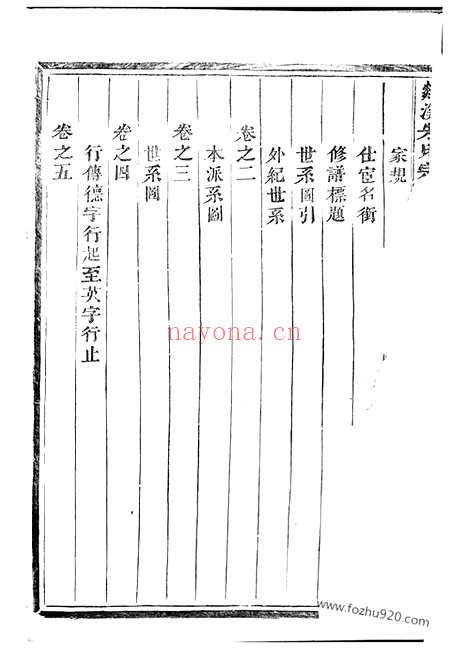 家規
仕宦名銜
修譜標題
世系圖引
外紀世系
卷之二
本派系圖
卷之三
世系圖
卷之四
行傳德字行起至英字行止
卷之五
nayona.cn
www.fozhu920.com